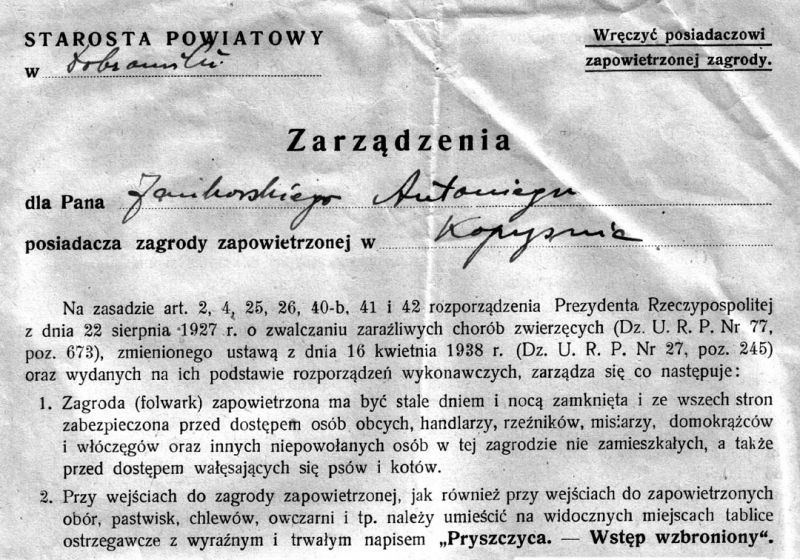 STAROSTA POWIATOWY
Wręczyć posiadaczowi
w Dobromilu
zapowietrzonej zagrody.
Zarządzenia
dla Pana Janikowskiego Antoniego
posiadacza zagrody zapowietrzonej w
Na zasadzie art. 2, 4, 25, 26, 40-b, 41 i 42 rozporządzenia Prezydenta Rzeczypospolitej
z dnia 22 sierpnia 1927 r. o zwalczaniu zaraźliwych chorób zwierzęcych (Dz. U. R. P. Nr 77,
poz. 673), zmienionego ustawą z dnia 16 kwietnia 1938 r. (Dz. U. R. P. Nr 27, poz. 245)
oraz wydanych na ich podstawie rozporządzeń wykonawczych, zarządza się co następuje:
1. Zagroda (folwark) zapowietrzona ma być stale dniem i nocą zamknięta i ze wszech stron
zabezpieczona przed dostępem osób obcych, handlarzy, rzeźników, misiarzy, domokrążców
i włóczęgów oraz innych niepowołanych osób w tej zagrodzie nie zamieszkałych, a także
przed dostępem wałęsających się psów i kotów.
2. Przy wejściach do zagrody zapowietrzonej, jak również przy wejściach do zapowietrzonych
obór, pastwisk, chlewów, owczarni i tp. należy umieścić na widocznych miejscach tablice
ostrzegawcze z wyraźnym i trwałym napisem „Pryszczyca. — Wstęp wzbroniony“.